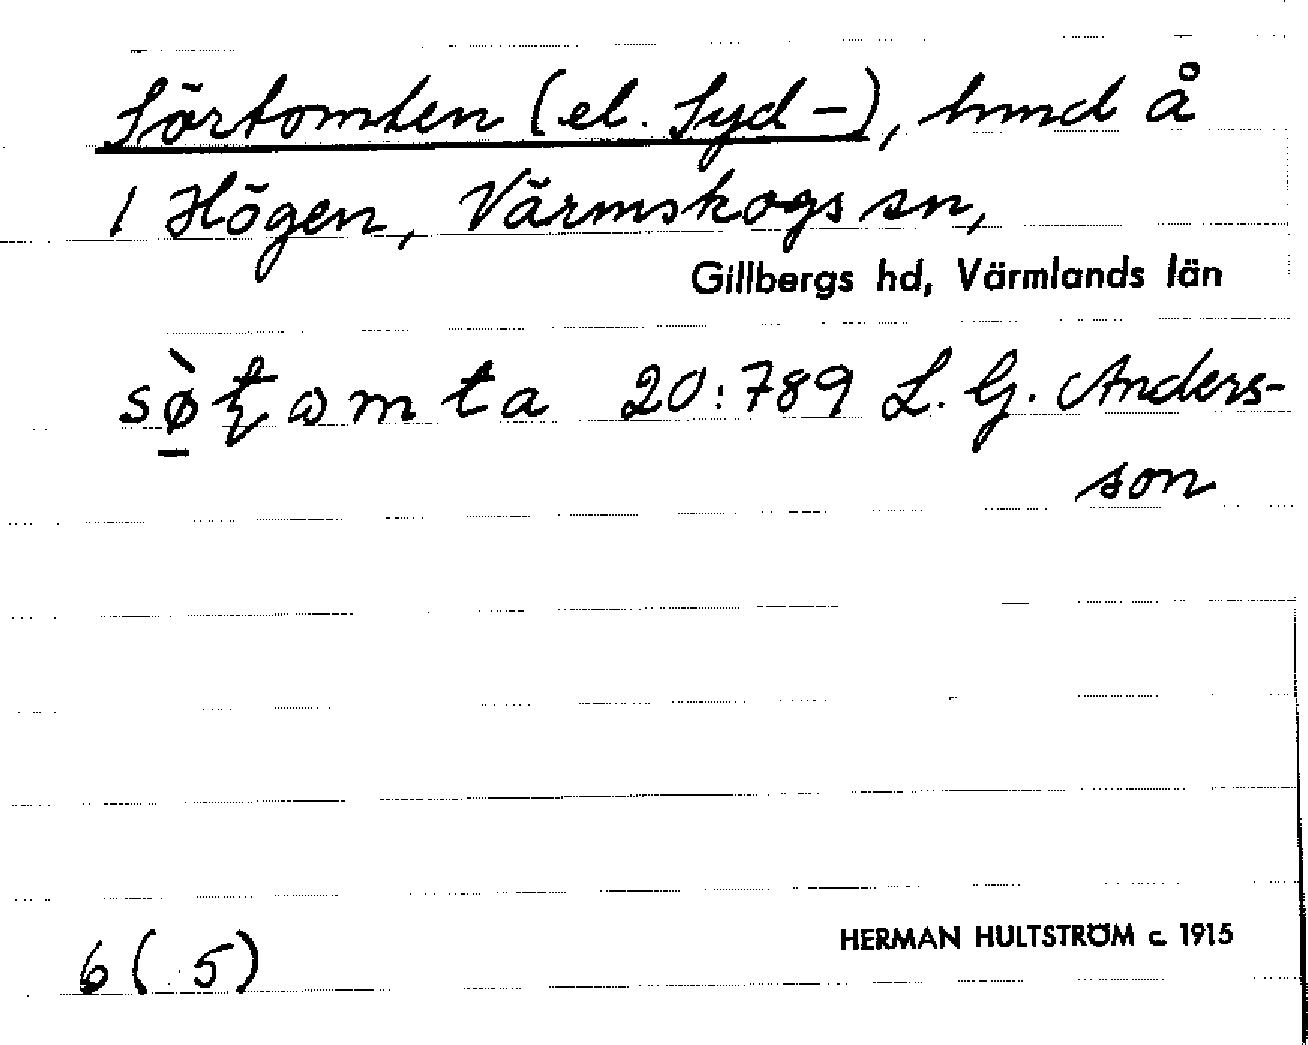 Sörtomten (el. Syd-), hmd å
1 Högen, Värmskogs sn,
Gillbergs hd, Värmlands län
20:789 L. G. Anders-
son
6(5)
HERMAN HULTSTRÖM c. 1915